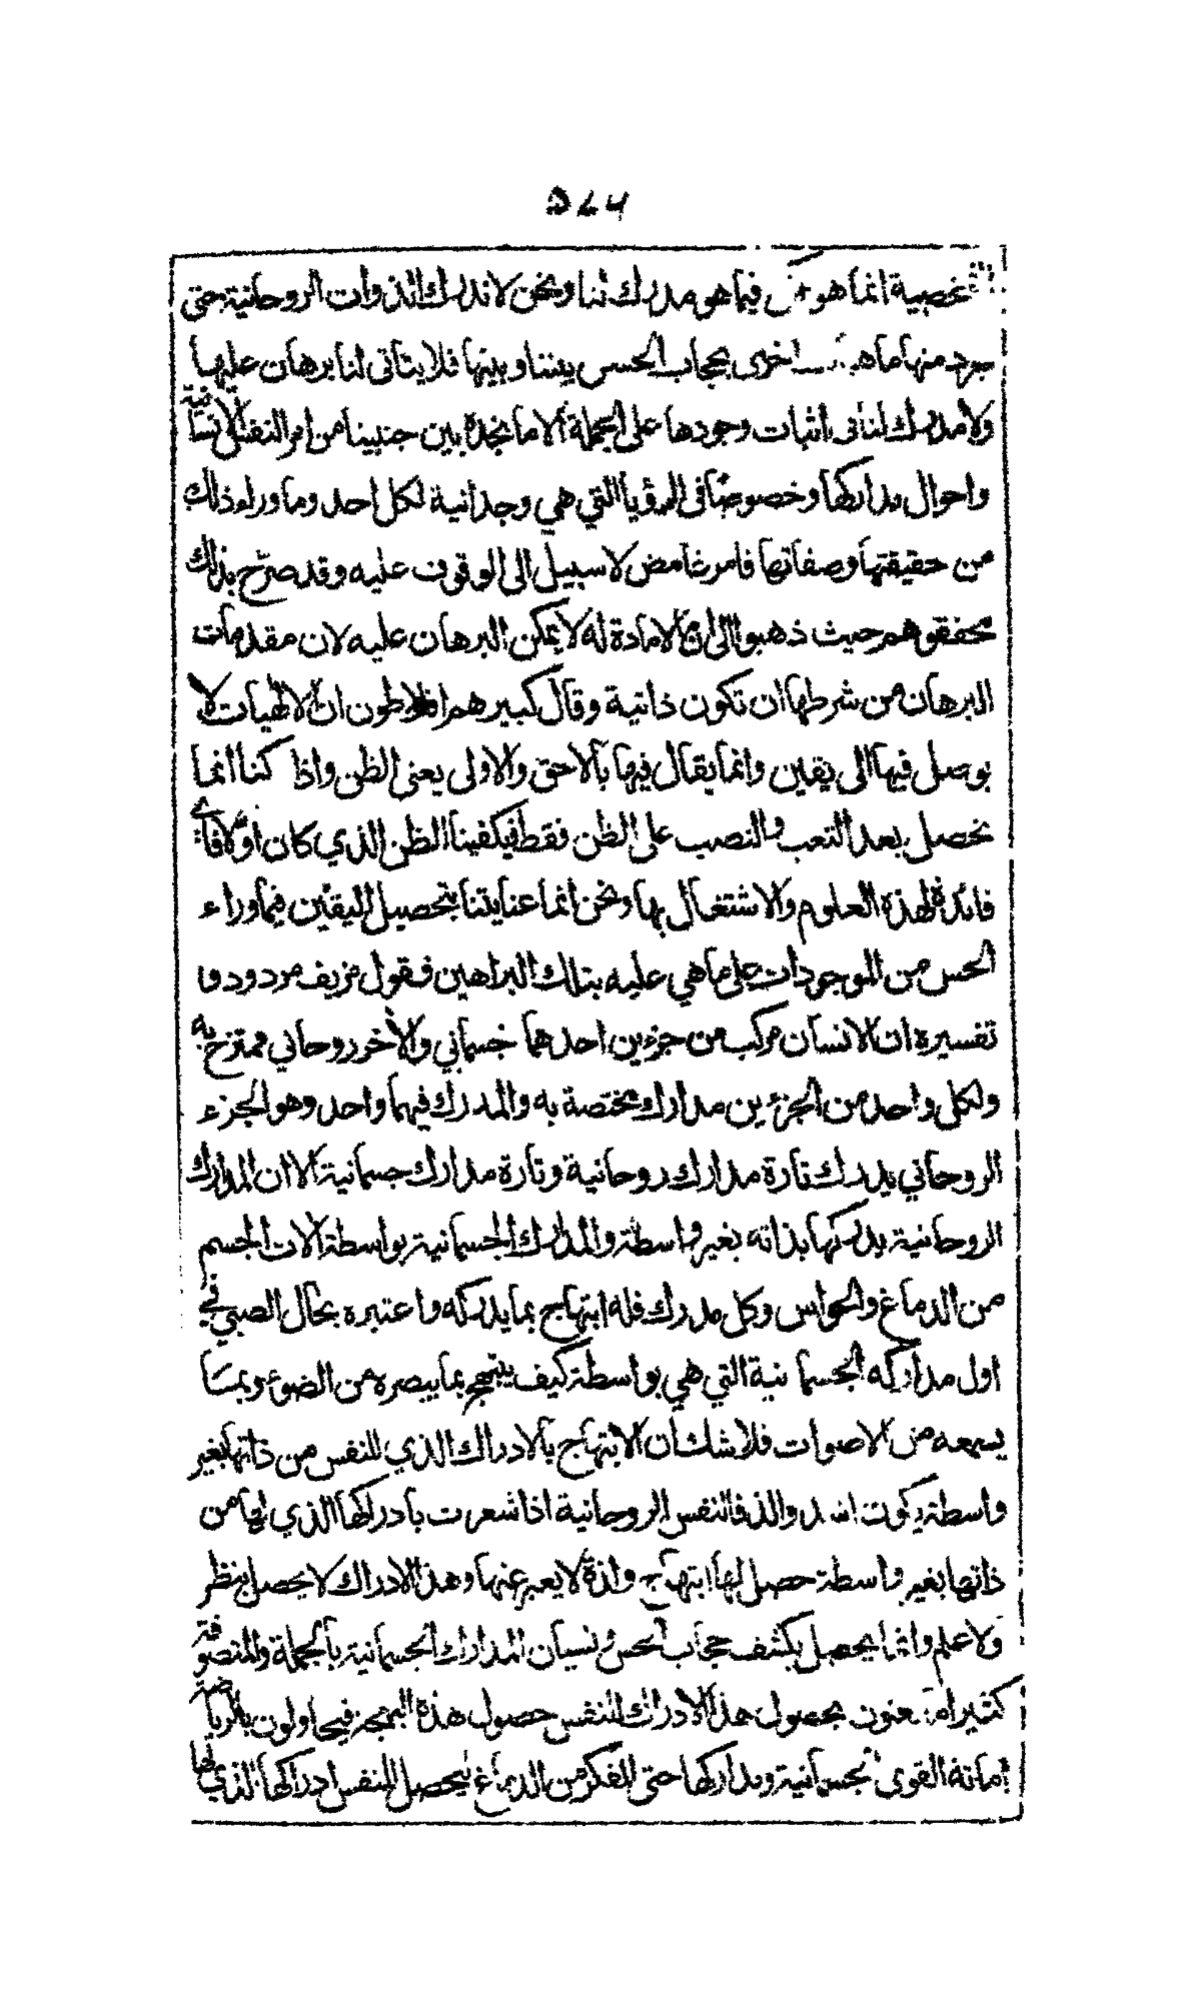 ٥٧٤
الشخصية انما هو فيما هو مدرك لنا ونحن لا ندرك الذوات الروحانية حتى
نجرد منها ماهيات اخرى بحجاب الحس بيننا وبينها فلا يتأتى لنا برهان عليها
ولا مدرك لنا في اثبات وجودها على الجملة الا ما نجده بين جنبينا من امر النفس الانسانية
واحوال مداركها وخصوصا في الرؤيا التي هي وجدانية لكل احد وما وراء ذلك
من حقيقتها وصفاتها فامر غامض لا سبيل الى الوقوف عليه وقد صرّح بذلك
محققوهم حيث ذهبوا الى ان ما لا مادة له لا يمكن البرهان عليه لان مقدمات
البرهان من شرطها ان تكون ذاتية وقال كبيرهم افلاطون ان الالهيات لا
يوصل فيها الى يقين وانما يقال فيها بالاحق والاولى يعنى الظن واذا كنا انما
نحصل بعد التعب والنصب على الظن فقط فيكفينا الظن الذي كان اولا فاي
فائدة لهذه العلوم والاشتغال بها ونحن انما عنايتنا بتحصيل اليقين فيما وراء
الحس من الموجودات على ما هي عليه بتلك البراهين فقول مزيف مردود و
تفسيره ان الانسان مركب من جزءين احدهما جسماني والآخر روحاني ممتزج به
ولكل واحد من الجزءين مدارك مختصة به والمدرك فيهما واحد وهو الجزء
الروحاني يدرك تارة مدارك روحانية وتارة مدارك جسمانية الا ان المدارك
الروحانية يدركها بذاته بغير واسطة والمدارك الجسمانية بواسطة الات الجسم
من الدماغ والحواس وكل مدرك فله ابتهاج بما يدركه واعتبره بحال الصبي في
اول مداركه الجسمانية التي هي بواسطة كيف يبتهج بما يبصره من الضوء وبما
يسمعه من الاصوات فلا شك ان الابتهاج بالادراك الذي للنفس من ذاتها بغير
واسطة يكون اشد والذ فالنفس الروحانية اذا شعرت بادراكها الذي لها من
ذاتها بغير واسطة حصل لها ابتهاج ولذة لا يعبر عنها وهذا الادراك لا يحصل بنظر
ولا علم وانما يحصل بكشف حجاب الحس ونسيان المدارك الجسمانية بالجملة والمتصوفة
كثيرا ما يعنون بحصول هذا الادراك للنفس حصول هذه البهجة فيحاولون بالرياضة
اماتة القوى الجسمانية ومداركها حتى الفكر من الدماغ ليحصل للنفس ادراكها الذي لها